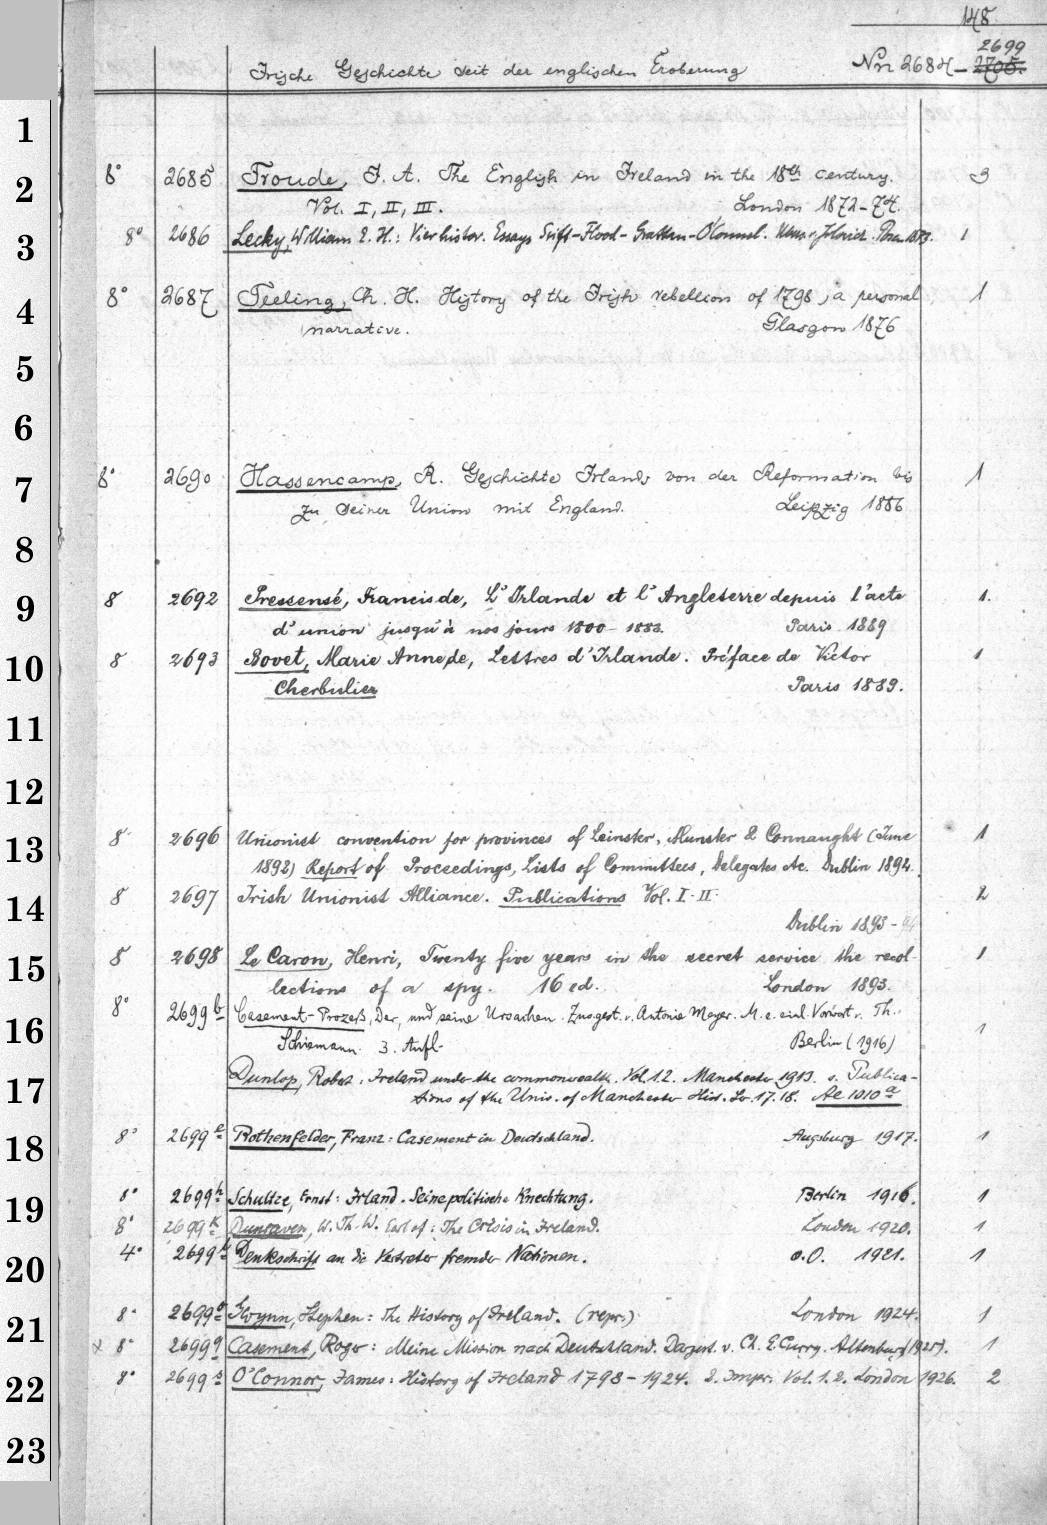 148
2699
Irische Geschichte seit der englischen Eroberung Nrn 2684 – 2705.
1
8° 2685 Froude, J. A. The English in Ireland in the 18th century. 3
2
Vol. I, II, III. London 1872–74.
3 8° 2686 Lecky, William E. H.: Vier histor. Essays Swift–Flood–Grattan–O'Connel. 1
4 8° 2687 Teeling, Ch. H. History of the Irish rebellion of 1798, a personal 1
narrative. Glasgow 1876
5
6
7 8° 2690 Hassencamp, R. Geschichte Irlands von der Reformation bis 1
zu seiner Union mit England. Leipzig 1886
8
9 8 2692 Pressensé, Francis de, L'Irlande et l'Angleterre depuis l'acte 1.
d'union jusqu'à nos jours 1800–1888. Paris 1889
10 8 2693 Bovet, Marie Anne de, Lettres d'Irlande. Préface de Victor 1
Cherbulier Paris 1889.
11
12
13 8 2696 Unionist convention for provinces of Leinster, Munster & Connaught (June 1
1892) Report of Proceedings, Lists of Committees, Delegates etc. Dublin 1894.
14 8 2697 Irish Unionist Alliance. Publications Vol. I–II 2
Dublin 1893–94
15 8 2698 Le Caron, Henri, Twenty five years in the secret service the recol- 1
lections of a spy. 16 ed. London 1893.
16 8° 2699 b Casement-Prozeß, Der, und seine Ursachen. Zusgest. v. Antonie Meyer. M. e. einl. Vorwort v. Th. 1
Schiemann. 3. Aufl. Berlin (1916)
17 Dunlop, Robert: Ireland under the commonwealth. Vol. 1.2. Manchester 1913. s. Publica-
tions of the Univ. of Manchester Hist. Ser. 17.18. Ac 1010 a
18 8° 2699 e Rothenfelder, Franz: Casement in Deutschland. Augsburg 1917. 1
19 8° 2699 h Schultze, Ernst: Irland. Seine politische Knechtung. Berlin 1916. 1
8° 2699 k Dunraven, W. Th. W. Earl of: The Crisis in Ireland. London 1920. 1
20 4° 2699 Denkschrift an die Vertreter fremder Nationen. o.O. 1921. 1
21 8° 2699 o Gwynn, Stephen: The History of Ireland. (repr.) London 1924. 1
x 8° 2699 q Casement, Roger: Meine Mission nach Deutschland. Dargest. v. Ch. E. Curry. Altenburg (1925). 1
22 8° 2699 s O'Connor, James: History of Ireland 1798–1924. 2. Impr. Vol. 1.2. London 1926. 2
23